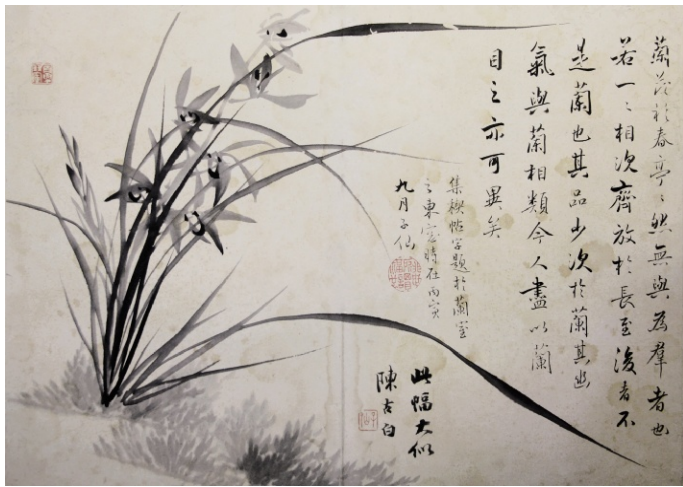 蘭茂於春亭々然無與為羣者也
若一々相次齊放於長至後者不
是蘭也其品少次於蘭其幽
氣與蘭相類今人盡以蘭
目之亦可異矣
集禊帖字題於蘭室
之東窗時在丙寅
九月子仙
此幅大似
陳古白